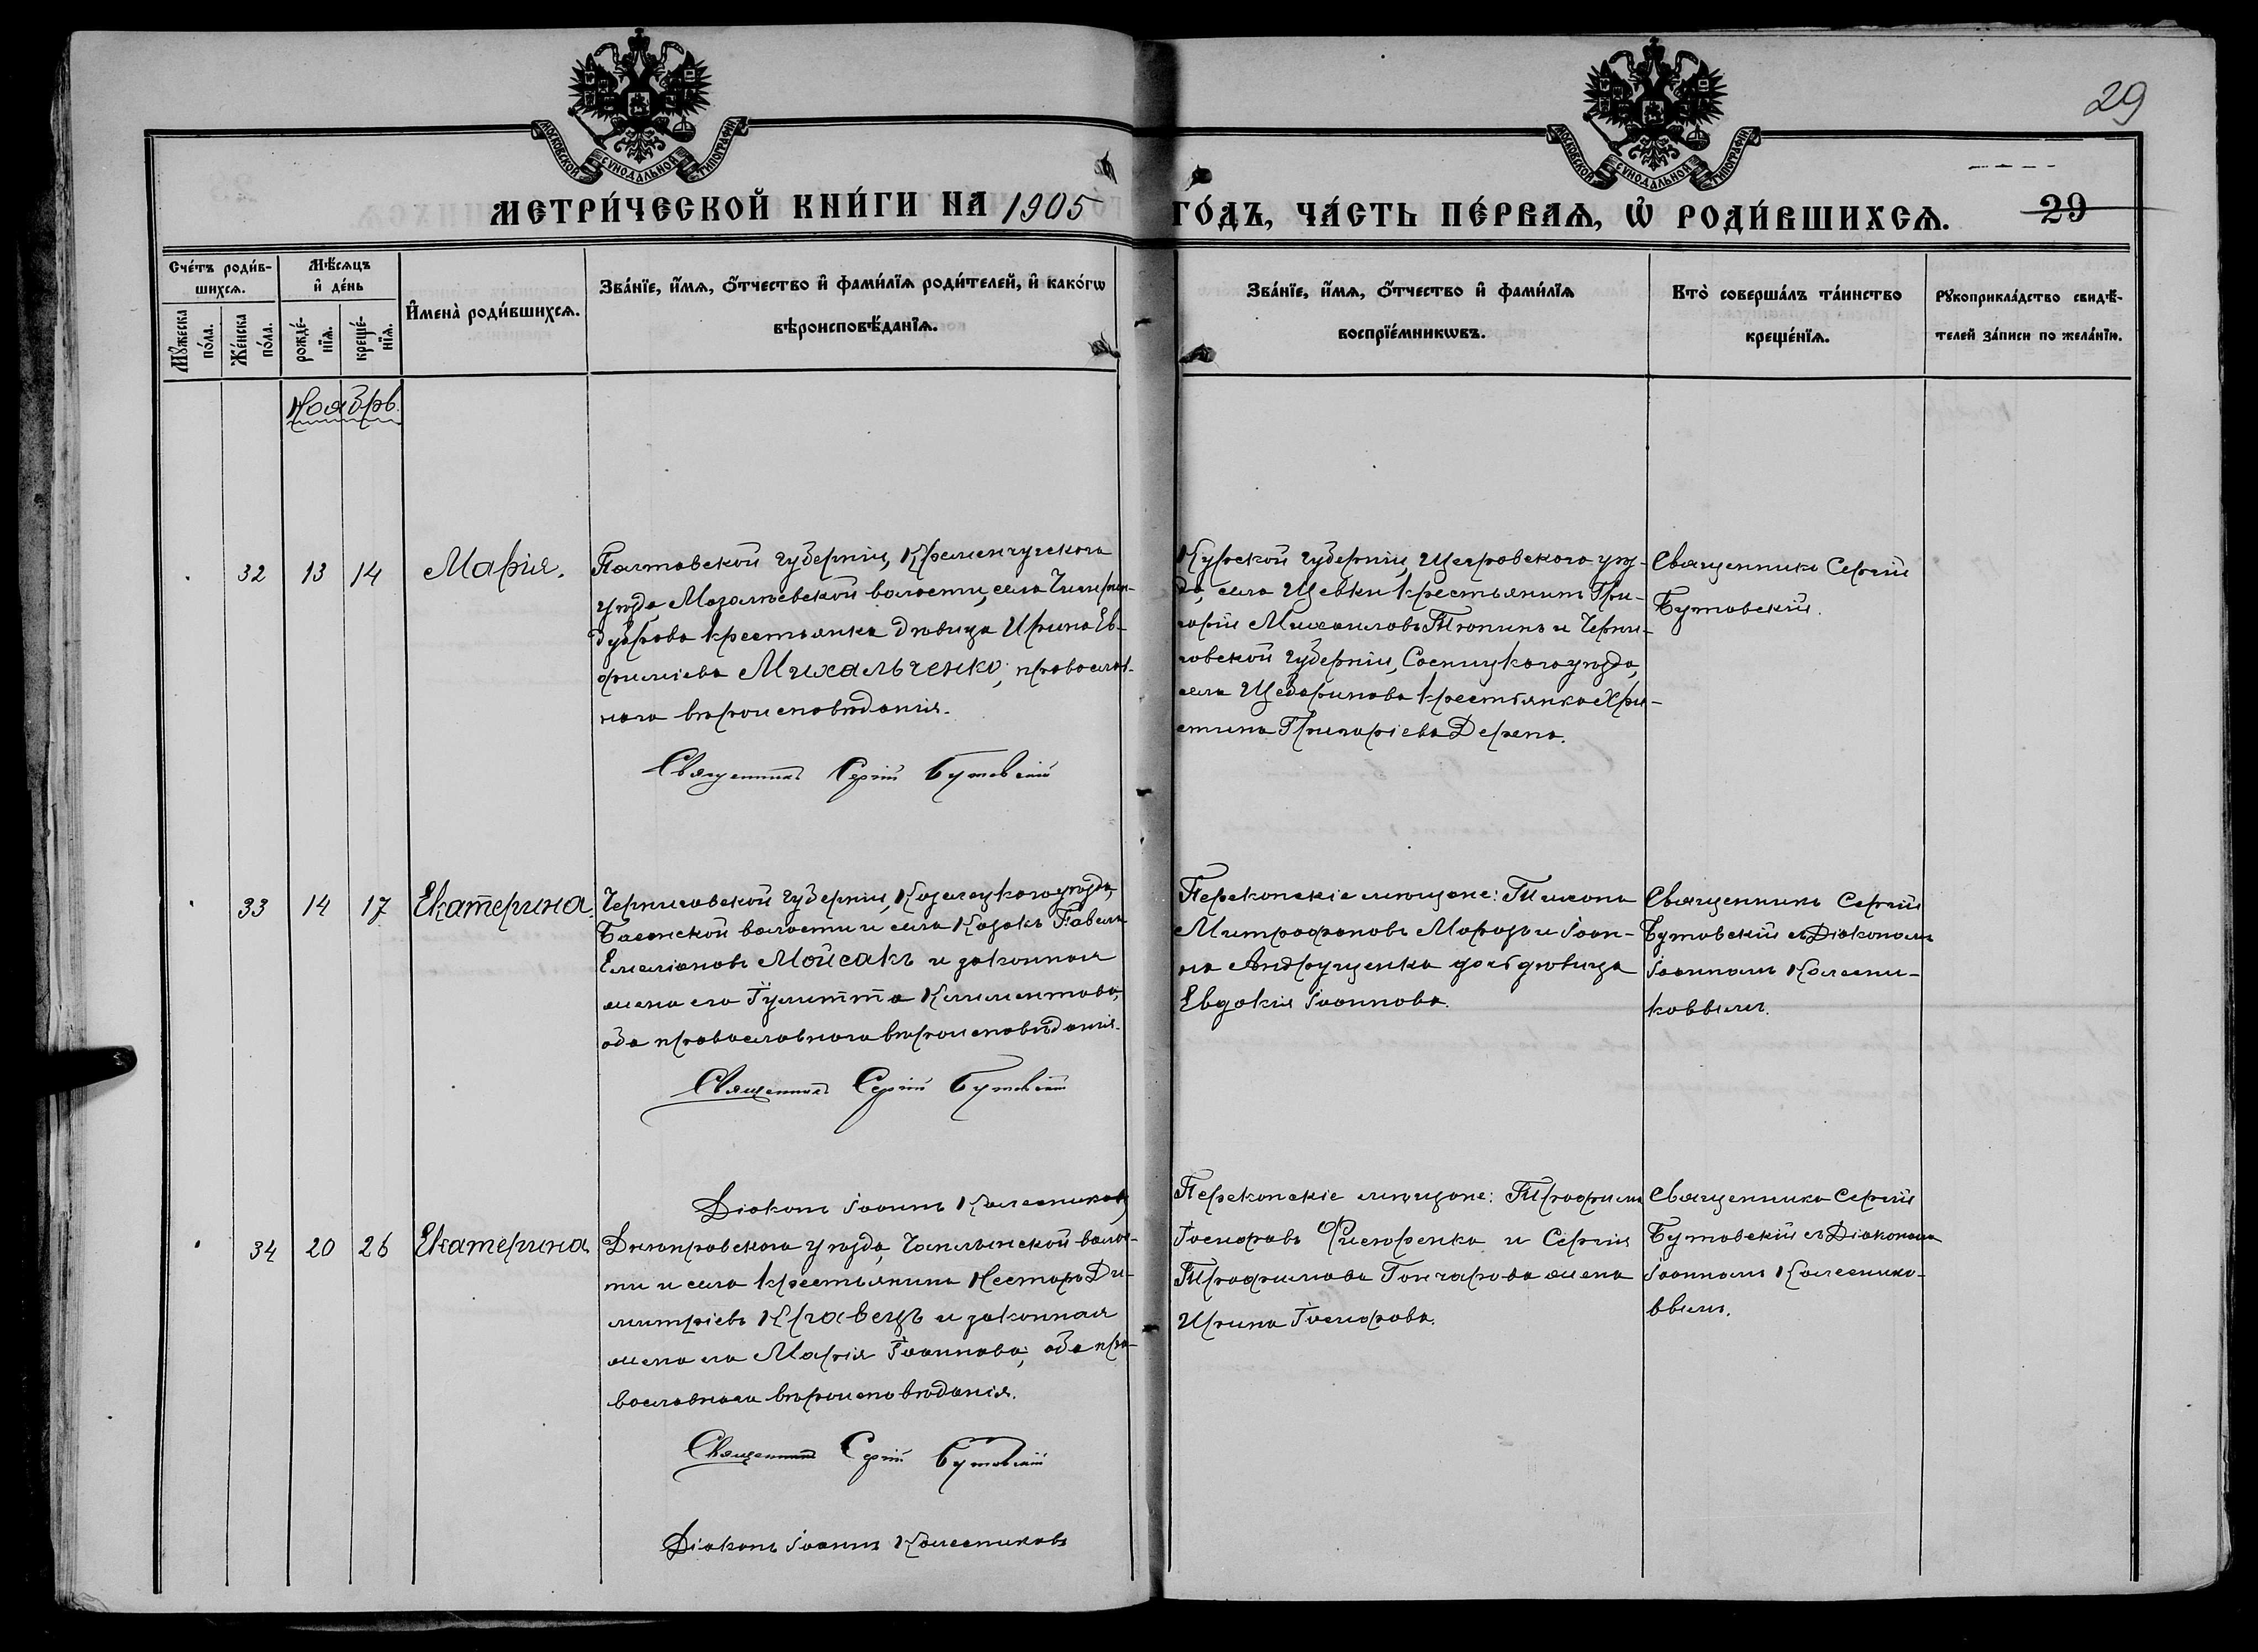 29
МОСКОВСКОЙ СѴНОДАЛЬНОЙ ТИПОГРАФІИ
МОСКОВСКОЙ СѴНОДАЛЬНОЙ ТИПОГРАФІИ
МЕТРИ́ЧЕСКОЙ КНИ́ГИ НА 1905
ГО́ДЪ, ЧА́СТЬ ПЕ́РВАѦ, Ѡ҆ РОДИ́ВШИХСѦ.
29
Сче́тъ роди́в-
шихсѧ.
Мꙋ́жеска
по́ла.
Же́нска
по́ла.
Мѣ́сѧцъ
и҆ де́нь
рожде́-
нїѧ.
креще́-
нїѧ.
И҆мена̀ роди́вшихсѧ.
Зва́нїе, и҆́мѧ, ѻ҆́тчество и҆ фами́лїѧ роди́телей, и҆ како́гѡ
вѣроисповѣ́данїѧ.
Зва́нїе, и҆́мѧ, ѻ҆́тчество и҆ фами́лїѧ
воспрїе́мникѡвъ.
Кто̀ соверша́лъ та́инство
креще́нїѧ.
Рꙋкоприкла́дство свидѣ́-
телей за́писи по жела́нїю.
Ноябрь.
32
13
14
Марія.
Полтавской губерніи, Кременчугскаго
уѣзда Мозолѣевской волости, села
крестьянка дѣвица Ирина Ев-
фиміева Михальченко, православ-
наго вѣроисповѣданія.
Священникъ Сергій Бутовскій
Курской губерніи, Щегровскаго уѣз-
да, села Щевки крестьянинъ Гри-
горій Михаиловъ Тюпинъ и Черни-
говской губерніи, Сосницкаго уѣзда,
села крестьянка Хри-
стина Григоріева Дерепа.
Священникъ Сергій
Бутовскій.
33
14
17
Екатерина.
Черниговской губерніи, Козелецкаго уѣзда,
Басанской волости и села Козакъ Павелъ
Емеліановъ Мойсакъ и законная
жена его Іулитта Климентова,
оба православнаго вѣроисповѣданія.
Священникъ Сергій Бутовскій
Діаконъ Іоаннъ Колесниковъ
Перекопскіе мѣщане: Тихонъ
Митрофановъ Морозъ и Іоан-
на Андрущенка дочь дѣвица
Евдокія Іоаннова.
Священникъ Сергій
Бутовскій съ Діакономъ
Іоанномъ Колесни-
ковымъ.
34
20
26
Екатерина
Днѣпровскаго уѣзда, Чаплынской волос-
ти и села крестьянинъ Несторъ Ди-
митріевъ Кравецъ и законная
жена его Марія Іоаннова, оба пра-
вославнаго вѣроисповѣданія.
Священникъ Сергій Бутовскій
Діаконъ Іоаннъ Колесниковъ
Перекопскіе мѣщане: Трофимъ
Іосифовъ и Сергія
Трофимова Гончарова жена
Ирина Іосифова.
Священникъ Сергій
Бутовскій съ Діакономъ
Іоанномъ Колеснико-
вымъ.